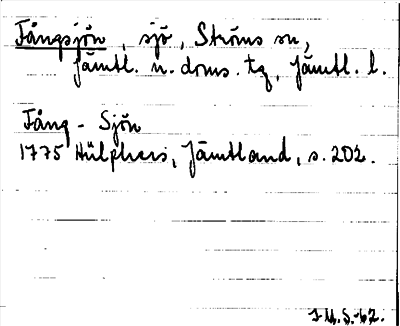 Fångsjön, sjö, Ströms sn,
Jämtl. n. doms. tg, Jämtl. l.
Fång - Sjön
1775 Hülphers, Jämtland, s. 202.
J.M.S.-62.